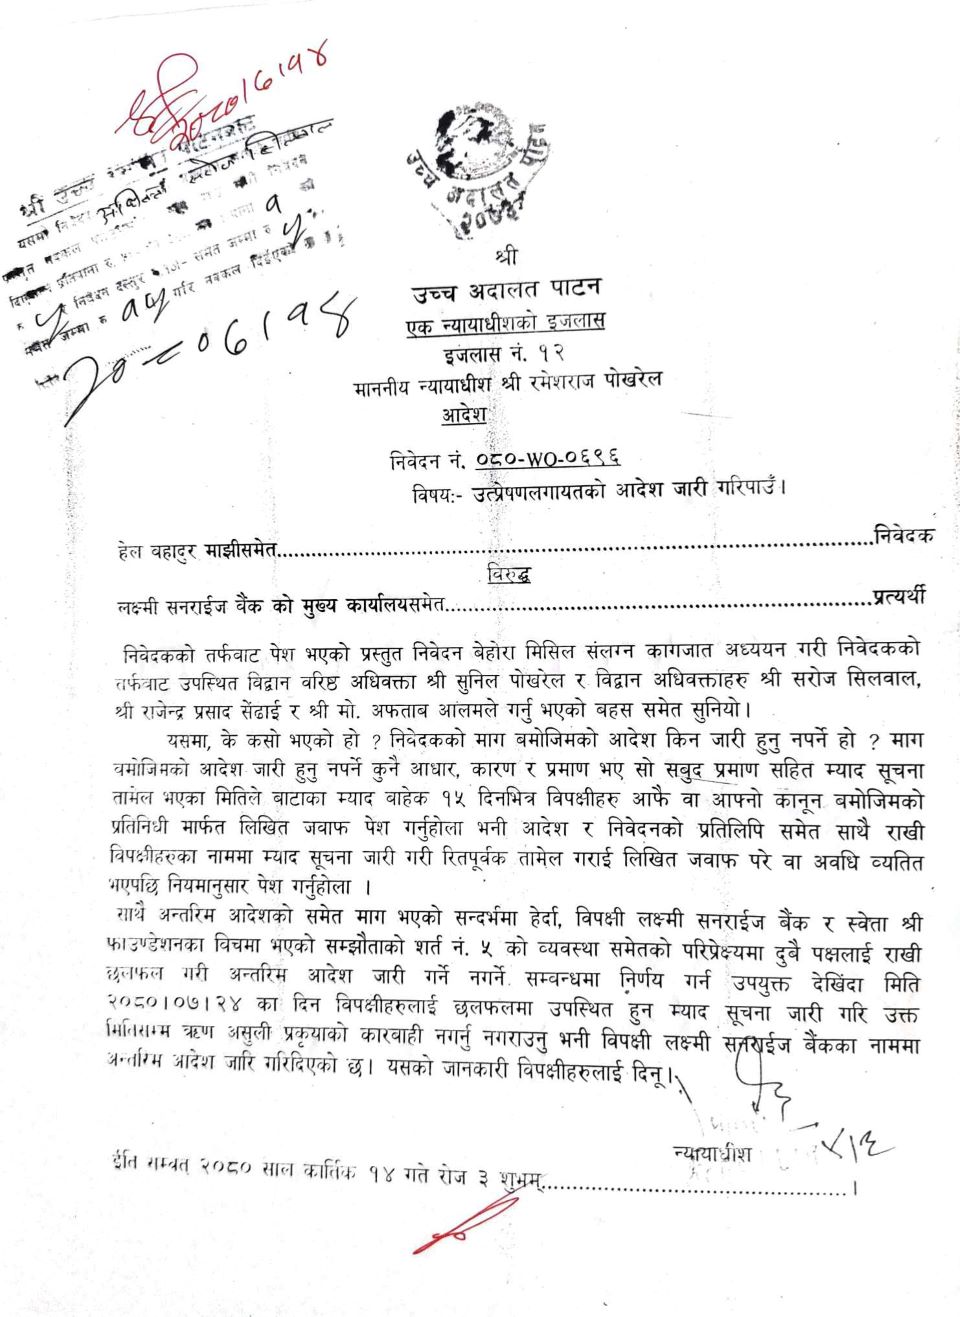 २०८०।६।१४
श्री उच्च
उच्च अदालत पाटन
२०७३
श्री
उच्च अदालत पाटन
एक न्यायाधीशको इजलास
इजलास नं. १२
माननीय न्यायाधीश श्री रमेशराज पोखरेल
आदेश
निवेदन नं. ०८०-WO-०६९६
विषयः- उत्प्रेषणलगायतको आदेश जारी गरिपाउँ।
हेल वहादुर माझीसमेत....................................................................................निवेदक
विरुद्ध
लक्ष्मी सनराईज वैंक को मुख्य कार्यालयसमेत................................................................प्रत्यर्थी
निवेदकको तर्फवाट पेश भएको प्रस्तुत निवेदन बेहोरा मिसिल संलग्न कागजात अध्ययन गरी निवेदकको
तर्फवाट उपस्थित विद्वान वरिष्ठ अधिवक्ता श्री सुनिल पोखरेल र विद्वान अधिवक्ताहरु श्री सरोज सिलवाल,
श्री राजेन्द्र प्रसाद सेंढाई र श्री मो. अफताब आलमले गर्नु भएको बहस समेत सुनियो।
यसमा, के कसो भएको हो ? निवेदकको माग बमोजिमको आदेश किन जारी हुनु नपर्ने हो ? माग
वमोजिमको आदेश जारी हुनु नपर्ने कुनै आधार, कारण र प्रमाण भए सो सबुद प्रमाण सहित म्याद सूचना
तामेल भएका मितिले बाटाका म्याद बाहेक १५ दिनभित्र विपक्षीहरु आफै वा आफ्नो कानून बमोजिमको
प्रतिनिधी मार्फत लिखित जवाफ पेश गर्नुहोला भनी आदेश र निवेदनको प्रतिलिपि समेत साथै राखी
विपक्षीहरुका नाममा म्याद सूचना जारी गरी रितपूर्वक तामेल गराई लिखित जवाफ परे वा अवधि व्यतित
भएपछि नियमानुसार पेश गर्नुहोला ।
साथै अन्तरिम आदेशको समेत माग भएको सन्दर्भमा हेर्दा, विपक्षी लक्ष्मी सनराईज बैंक र स्वेता श्री
फाउण्डेशनका विचमा भएको सम्झौताको शर्त नं. ५ को व्यवस्था समेतको परिप्रेक्ष्यमा दुबै पक्षलाई राखी
छलफल गरी अन्तरिम आदेश जारी गर्ने नगर्ने सम्वन्धमा निर्णय गर्न उपयुक्त देखिंदा मिति
२०८०।०७।२४ का दिन विपक्षीहरुलाई छलफलमा उपस्थित हुन म्याद सूचना जारी गरि उक्त
मितिसम्म ऋण असुली प्रकृयाको कारवाही नगर्नु नगराउनु भनी विपक्षी लक्ष्मी सनराईज बैंकका नाममा
अन्तरिम आदेश जारि गरिदिएको छ। यसको जानकारी विपक्षीहरुलाई दिनू।
न्यायाधीश
ईति सम्वत् २०८० साल कार्तिक १४ गते रोज ३ शुभम्..............................................।